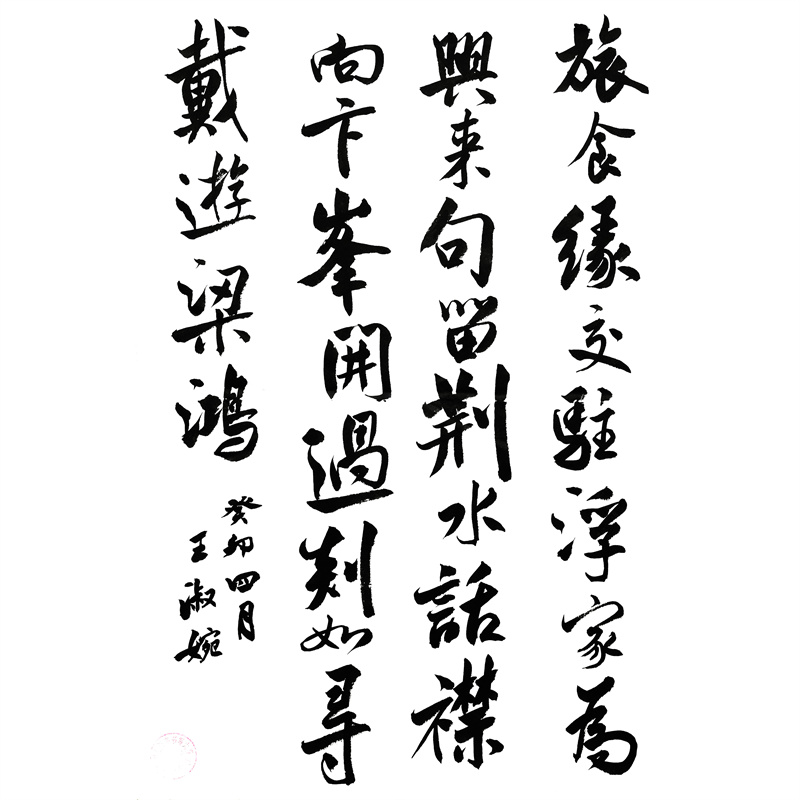 旅食緣交駐浮家為
興来句留荆水話襟
向卞峯開過剡如尋
戴遊梁鴻
癸卯四月
王淑婉